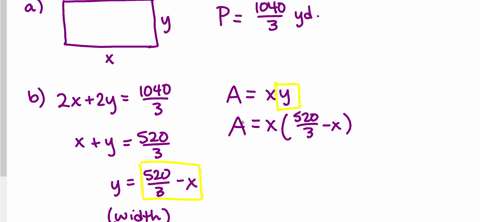 a)
y
x
P = 1040/3 yd.
b) 2x+2y = 1040/3
x + y = 520/3
y = 520/3 - x
(width)
A = xy
A = x(520/3 - x)